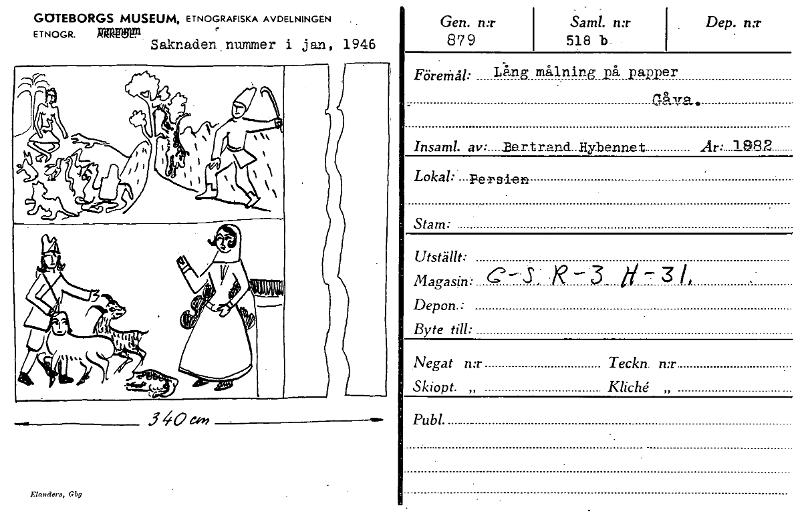 GÖTEBORGS MUSEUM, ETNOGRAFISKA AVDELNINGEN
ETNOGR.
Saknaden nummer i jan, 1946
340 cm
Elanders, Gbg
Gen. n:r Saml. n:r Dep. n:r
879 518 b
Föremål: Lång målning på papper
Gåva.
Insaml. av: Bertrand Hybennet År: 1882
Lokal: Persien
Stam:
Utställt:
Magasin: C-S. R-3 H-31.
Depon.:
Byte till:
Negat n:r Teckn. n:r
Skiopt. „ Kliché „
Publ.